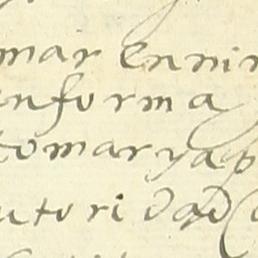 mar en nin
enforma
tomar y ap
utoridad